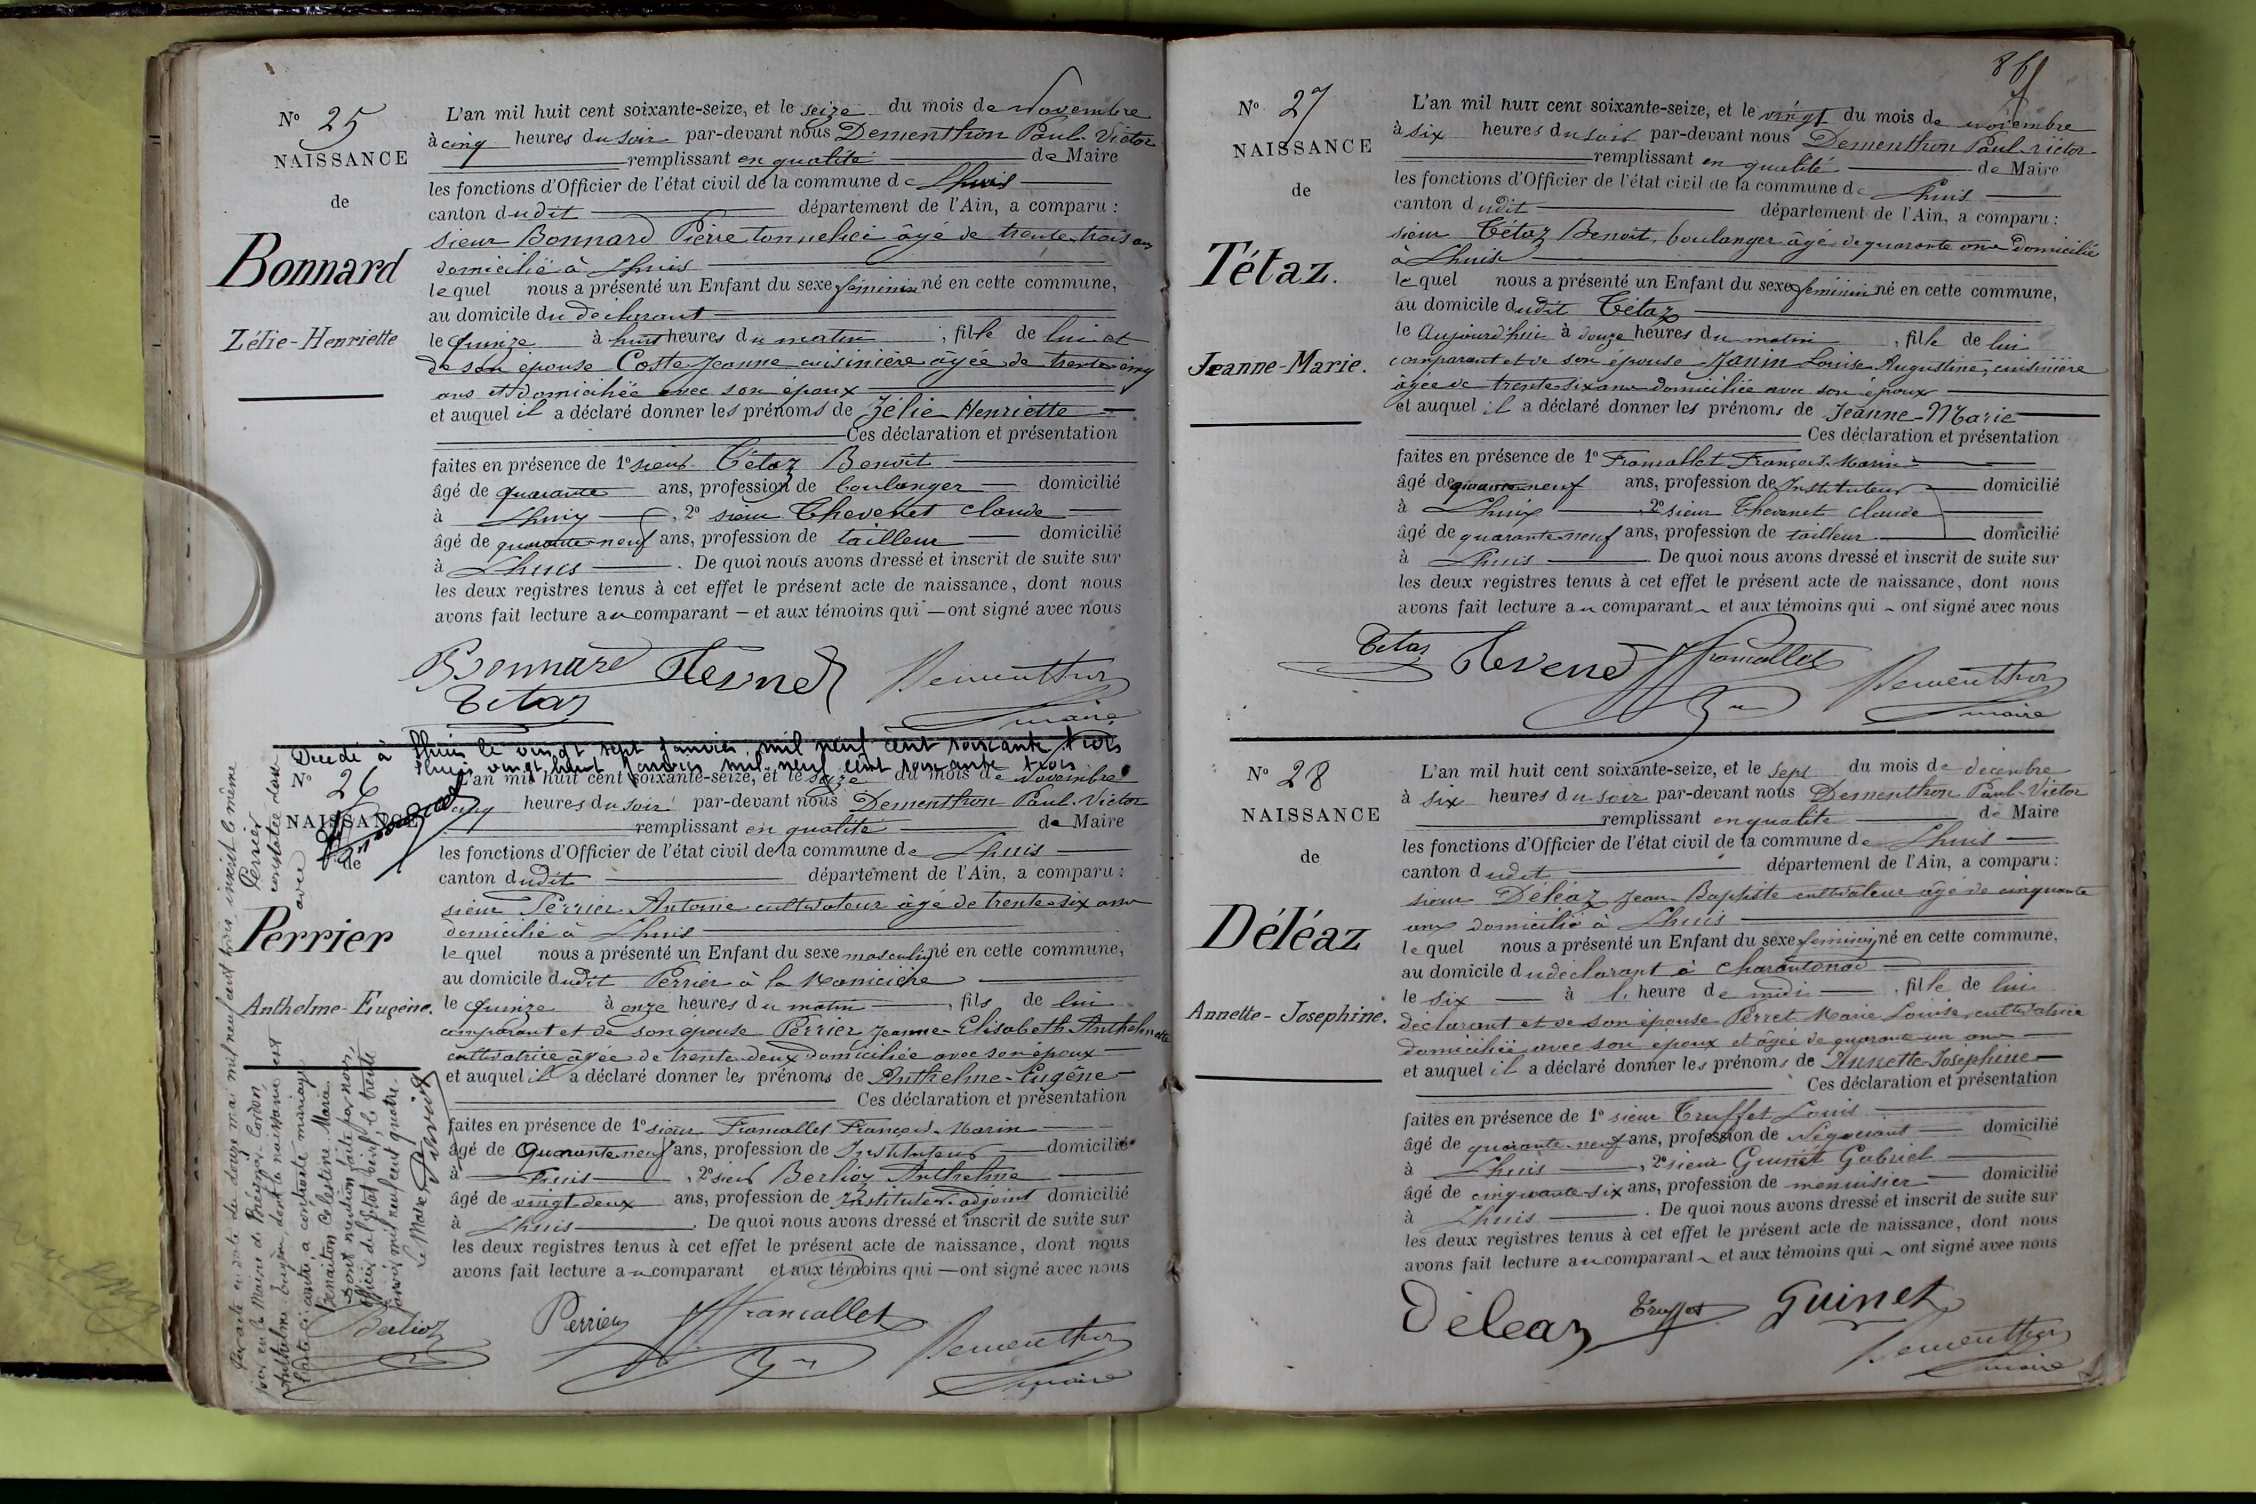 N° 25
NAISSANCE
de
Bonnard
Zélie-Henriette
L'an mil huit cent soixante-seize, et le seize du mois de Novembre
à cinq heures du soir par-devant nous Dementhon Paul-Victor
remplissant en qualité de Maire
les fonctions d'Officier de l'état civil de la commune de Lhuis
canton dudit département de l'Ain, a comparu :
sieur Bonnard Pierre tonnelier âgé de trente-trois ans
domicilié à Lhuis
lequel nous a présenté un Enfant du sexe féminin né en cette commune,
au domicile du déclarant
le quinze à huit heures du matin, fille de lui et
de son épouse Coste Jeanne cuisinière âgée de trente-cinq
ans et domiciliée avec son époux
et auquel il a déclaré donner les prénoms de Zélie Henriette
Ces déclaration et présentation
faites en présence de 1° sieur Tétaz Benoît
âgé de quarante ans, profession de boulanger domicilié
à Lhuis, 2° sieur Thevenet Claude
âgé de quarante-neuf ans, profession de tailleur domicilié
à Lhuis. De quoi nous avons dressé et inscrit de suite sur
les deux registres tenus à cet effet le présent acte de naissance, dont nous
avons fait lecture au comparant et aux témoins qui ont signé avec nous
Bonnard Thevenet Dementhon
Tetaz maire
Décédé à Lhuis le vingt sept janvier mil neuf cent soixante trois
Lhuis vingt huit janvier mil neuf cent soixante trois
N° 26
NAISSANCE
de
Perrier
Anthelme-Eugène.
L'an mil huit cent soixante-seize, et le seize du mois de Novembre
cinq heures du soir par-devant nous Dementhon Paul-Victor
remplissant en qualité de Maire
les fonctions d'Officier de l'état civil de la commune de Lhuis
canton dudit département de l'Ain, a comparu :
sieur Perrier Antoine cultivateur âgé de trente-six ans
domicilié à Lhuis
lequel nous a présenté un Enfant du sexe masculin né en cette commune,
au domicile dudit Perrier à la
le quinze à onze heures du matin, fils de lui
comparant et de son épouse Perrier Jeanne-Elisabeth
cultivatrice âgée de trente-deux domiciliée avec son époux
et auquel il a déclaré donner les prénoms de Anthelme-Eugène
Ces déclaration et présentation
faites en présence de 1° sieur Francallet François-Marin
âgé de Quarante-neuf ans, profession de Instituteur domicilié
à Lhuis, 2° sieur Berlioz Anthelme
âgé de vingt-deux ans, profession de Instituteur-adjoint domicilié
à Lhuis. De quoi nous avons dressé et inscrit de suite sur
les deux registres tenus à cet effet le présent acte de naissance, dont nous
avons fait lecture au comparant et aux témoins qui ont signé avec nous
Berlioz Perrier Francallet Dementhon
maire
Par acte en date du douze mai mil neuf cent trois, inscrit le même
jour en la Mairie de Briord, Perrier
Anthelme-Eugène, dont la naissance est constatée dans
l'acte ci-contre a contracté mariage avec
Célestine Marie.
Dont mention faite par nous,
officier de l'état civil, le trente
janvier mil neuf cent quatre.
Le Maire
86
N° 27
NAISSANCE
de
Tétaz.
Jeanne-Marie.
L'an mil huit cent soixante-seize, et le vingt du mois de novembre
à six heures du soir par-devant nous Dementhon Paul-Victor
remplissant en qualité de Maire
les fonctions d'Officier de l'état civil de la commune de Lhuis
canton dudit département de l'Ain, a comparu :
sieur Tétaz Benoît, boulanger âgé de quarante ans Domicilié
à Lhuis
lequel nous a présenté un Enfant du sexe féminin né en cette commune,
au domicile dudit Tétaz
le Aujourd'hui à douze heures du matin, fille de lui
comparant et de son épouse Janin Louise Augustine, cuisinière
âgée de trente-six ans domiciliée avec son époux
et auquel il a déclaré donner les prénoms de Jeanne-Marie
Ces déclaration et présentation
faites en présence de 1° Francallet François-Marin
âgé de quarante-neuf ans, profession de Instituteur domicilié
à Lhuis, 2° sieur Thevenet Claude
âgé de quarante-neuf ans, profession de tailleur domicilié
à Lhuis. De quoi nous avons dressé et inscrit de suite sur
les deux registres tenus à cet effet le présent acte de naissance, dont nous
avons fait lecture au comparant et aux témoins qui ont signé avec nous
Tetaz Thevenet Francallet Dementhon
maire
N° 28
NAISSANCE
de
Déléaz
Annette-Josephine.
L'an mil huit cent soixante-seize, et le sept du mois de décembre
à six heures du soir par-devant nous Dementhon Paul-Victor
remplissant en qualité de Maire
les fonctions d'Officier de l'état civil de la commune de Lhuis
canton dudit département de l'Ain, a comparu :
sieur Déléaz Jean-Baptiste cultivateur âgé de cinquante
ans domicilié à Lhuis
lequel nous a présenté un Enfant du sexe féminin né en cette commune,
au domicile du déclarant à
le six à l' heure de midi, fille de lui
déclarant et de son épouse Perret Marie Louise, cultivatrice
domiciliée avec son époux et âgée de quarante-un ans
et auquel il a déclaré donner les prénoms de Annette-Joséphine
Ces déclaration et présentation
faites en présence de 1° sieur Truffet Louis
âgé de quarante-neuf ans, profession de Négociant domicilié
à Lhuis, 2° sieur Guinet Gabriel
âgé de cinquante-six ans, profession de menuisier domicilié
à Lhuis. De quoi nous avons dressé et inscrit de suite sur
les deux registres tenus à cet effet le présent acte de naissance, dont nous
avons fait lecture au comparant et aux témoins qui ont signé avec nous
Déléaz Truffet Guinet
Dementhon
maire